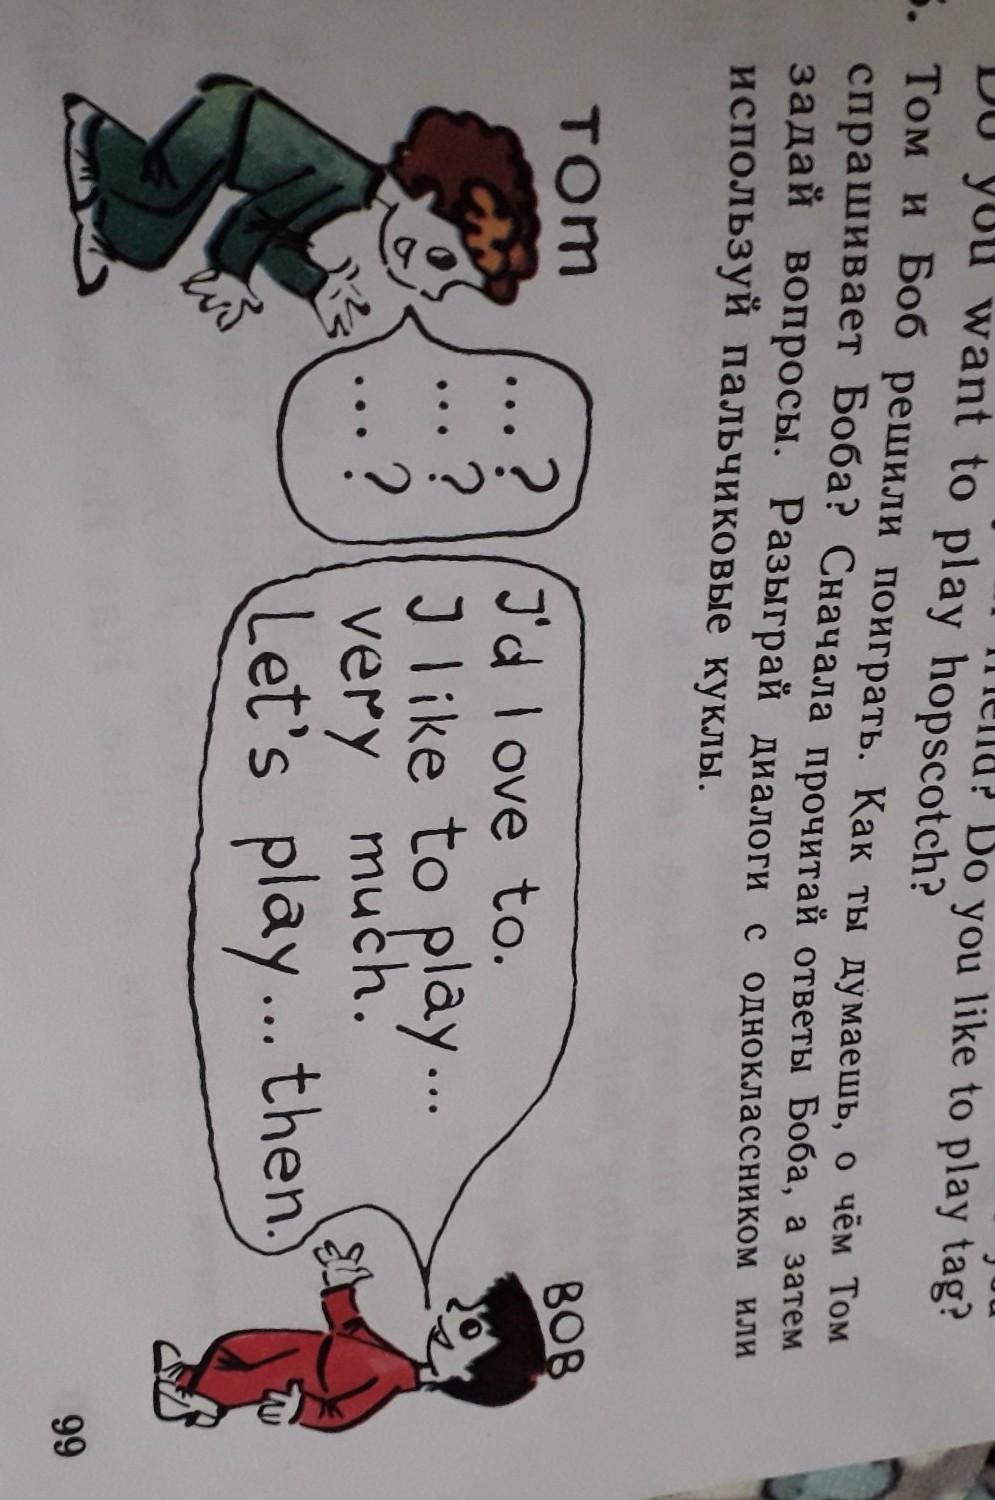 you want to play hopscotch?
Do you like to play tag?
Том и Боб решили поиграть. Как ты думаешь, о чём Том
спрашивает Боба? Сначала прочитай ответы Боба, а затем
задай вопросы. Разыграй диалоги с одноклассником или
используй пальчиковые куклы.
TOM
...?
...?
...?
I'd love to.
I like to play...
very much.
Let's play... then.
BOB
99